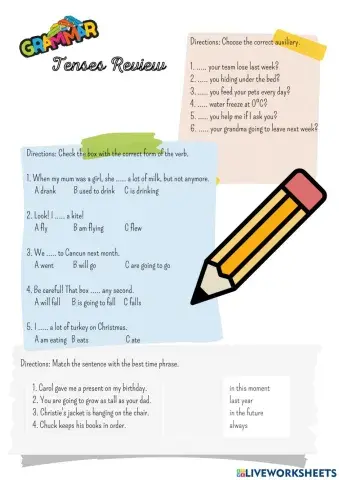 GRAMMAR
Tenses Review
Directions: Choose the correct auxiliary.
1. ...... your team lose last week?
2. ..... you hiding under the bed?
3. ..... you feed your pets every day?
4. ..... water freeze at 0°C?
5. ..... you help me if I ask you?
6. ..... your grandma going to leave next week?
Directions: Check the box with the correct form of the verb.
1. When my mum was a girl, she ..... a lot of milk, but not anymore.
A drank B used to drink C is drinking
2. Look! I ..... a kite!
A fly B am flying C flew
3. We ..... to Cancun next month.
A went B will go C are going to go
4. Be careful! That box ..... any second.
A will fall B is going to fall C falls
5. I ..... a lot of turkey on Christmas.
A am eating B eats C ate
Directions: Match the sentence with the best time phrase.
1. Carol gave me a present on my birthday. in this moment
2. You are going to grow as tall as your dad. last year
3. Christie's jacket is hanging on the chair. in the future
4. Chuck keeps his books in order. always
LIVEWORKSHEETS